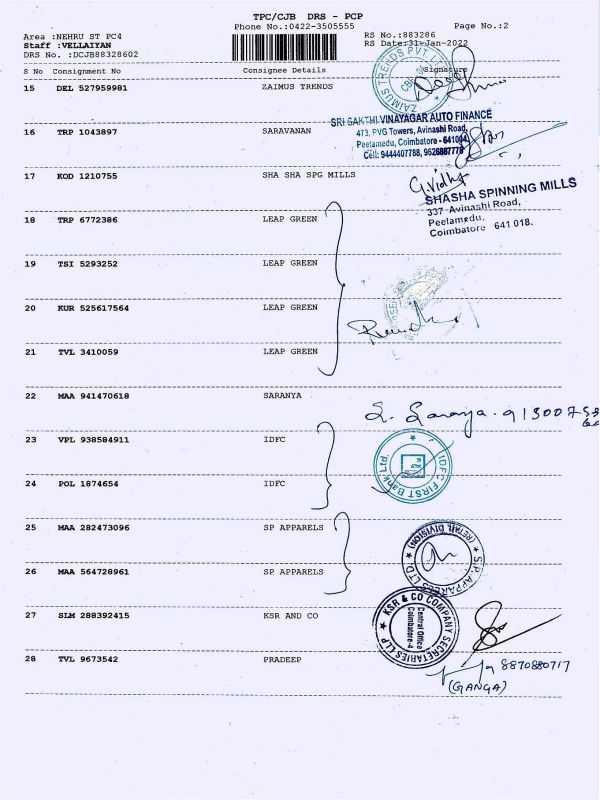 TPC/CJB DRS - PCP
Phone No.:0422-3505555
Page No.:2
Area :NEHRU ST PC4
Staff :VELLAIYAN
DRS No. :DCJB88328602
RS No.:883286
RS Date:31-Jan-2022
S No Consignment No Consignee Details Signature
15 DEL 527959981 ZAIMUS TRENDS
ZAIMUS TRENDS PVT. LTD.
16 TRP 1043897 SARAVANAN
SRI SAKTHI VINAYAGAR AUTO FINANCE
473, PVG Towers, Avinashi Road,
Peelamedu, Coimbatore - 641004
Cell: 9444407788, 9626887778
17 KOD 1210755 SHA SHA SPG MILLS
G.Vidhya
SHASHA SPINNING MILLS
337 Avinashi Road,
Peelamedu,
Coimbatore 641 018.
18 TRP 6772386 LEAP GREEN
19 TSI 5293252 LEAP GREEN
20 KUR 525617564 LEAP GREEN
21 TVL 3410059 LEAP GREEN
22 MAA 941470618 SARANYA
S. Saranya.
23 VPL 938584911 IDFC
IDFC FIRST Bank Ltd.
24 POL 1874654 IDFC
25 MAA 282473096 SP APPARELS
S.P. APPARELS LTD
(RETAIL DIVISION)
26 MAA 564728961 SP APPARELS
27 SLM 288392415 KSR AND CO
KSR & CO COMPANY SECRETARIES LLP
Central Office
Coimbatore-4
28 TVL 9673542 PRADEEP
8870880717
(GANGA)